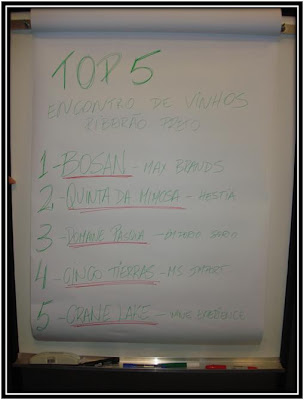 TOP 5
ENCONTRO DE VINHOS
RIBEIRÃO PRETO
1 - BOSAN - MAX BRANDS
2 - QUINTA DA MIMOSA - HESTIA
3 - PASQUA -
4 - CINCO TIERRAS - MS IMPORT
5 - CRANE LAKE - WINE EXPERIENCE